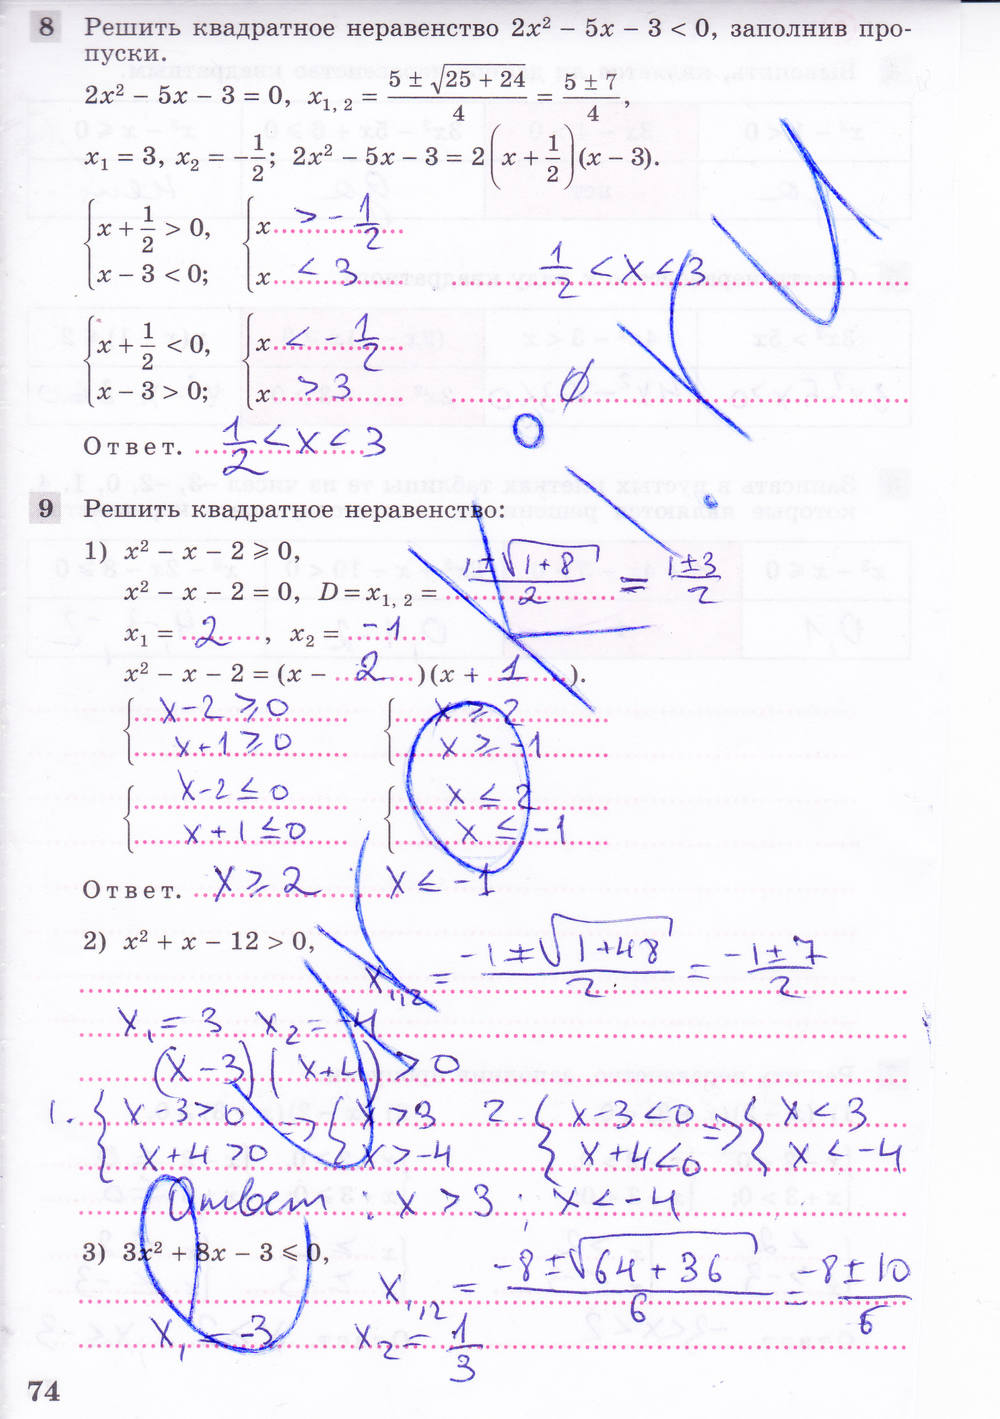 8 Решить квадратное неравенство 2x² − 5x − 3 < 0, заполнив про-
пуски.
2x² − 5x − 3 = 0, x₁, ₂ = (5 ± √(25 + 24))/4 = (5 ± 7)/4,
x₁ = 3, x₂ = −1/2; 2x² − 5x − 3 = 2(x + 1/2)(x − 3).
{ x + 1/2 > 0, { x > −1/2
{ x − 3 < 0; { x < 3 1/2 < x < 3
{ x + 1/2 < 0, { x < −1/2
{ x − 3 > 0; { x > 3 ∅
Ответ. 1/2 < x < 3
9 Решить квадратное неравенство:
1) x² − x − 2 ⩾ 0,
x² − x − 2 = 0, D = x₁, ₂ = (1 ± √(1 + 8))/2 = (1 ± 3)/2
x₁ = 2, x₂ = −1
x² − x − 2 = (x − 2)(x + 1).
{ x − 2 ⩾ 0 { x ⩾ 2
{ x + 1 ⩾ 0 { x ⩾ −1
{ x − 2 ≤ 0 { x ≤ 2
{ x + 1 ≤ 0 { x ≤ −1
Ответ. x ⩾ 2 ; x ≤ −1
2) x² + x − 12 > 0,
x₁,₂ = (−1 ± √(1 + 48))/2 = (−1 ± 7)/2
x₁ = 3 x₂ = −4
(x − 3)(x + 4) > 0
1. { x − 3 > 0 => { x > 3 2. { x − 3 < 0 => { x < 3
{ x + 4 > 0 { x > −4 { x + 4 < 0 { x < −4
Ответ: x > 3 ; x < −4
3) 3x² + 8x − 3 ⩽ 0,
x₁,₂ = (−8 ± √(64 + 36))/6 = (−8 ± 10)/6
x₁ = −3 x₂ = 1/3
74